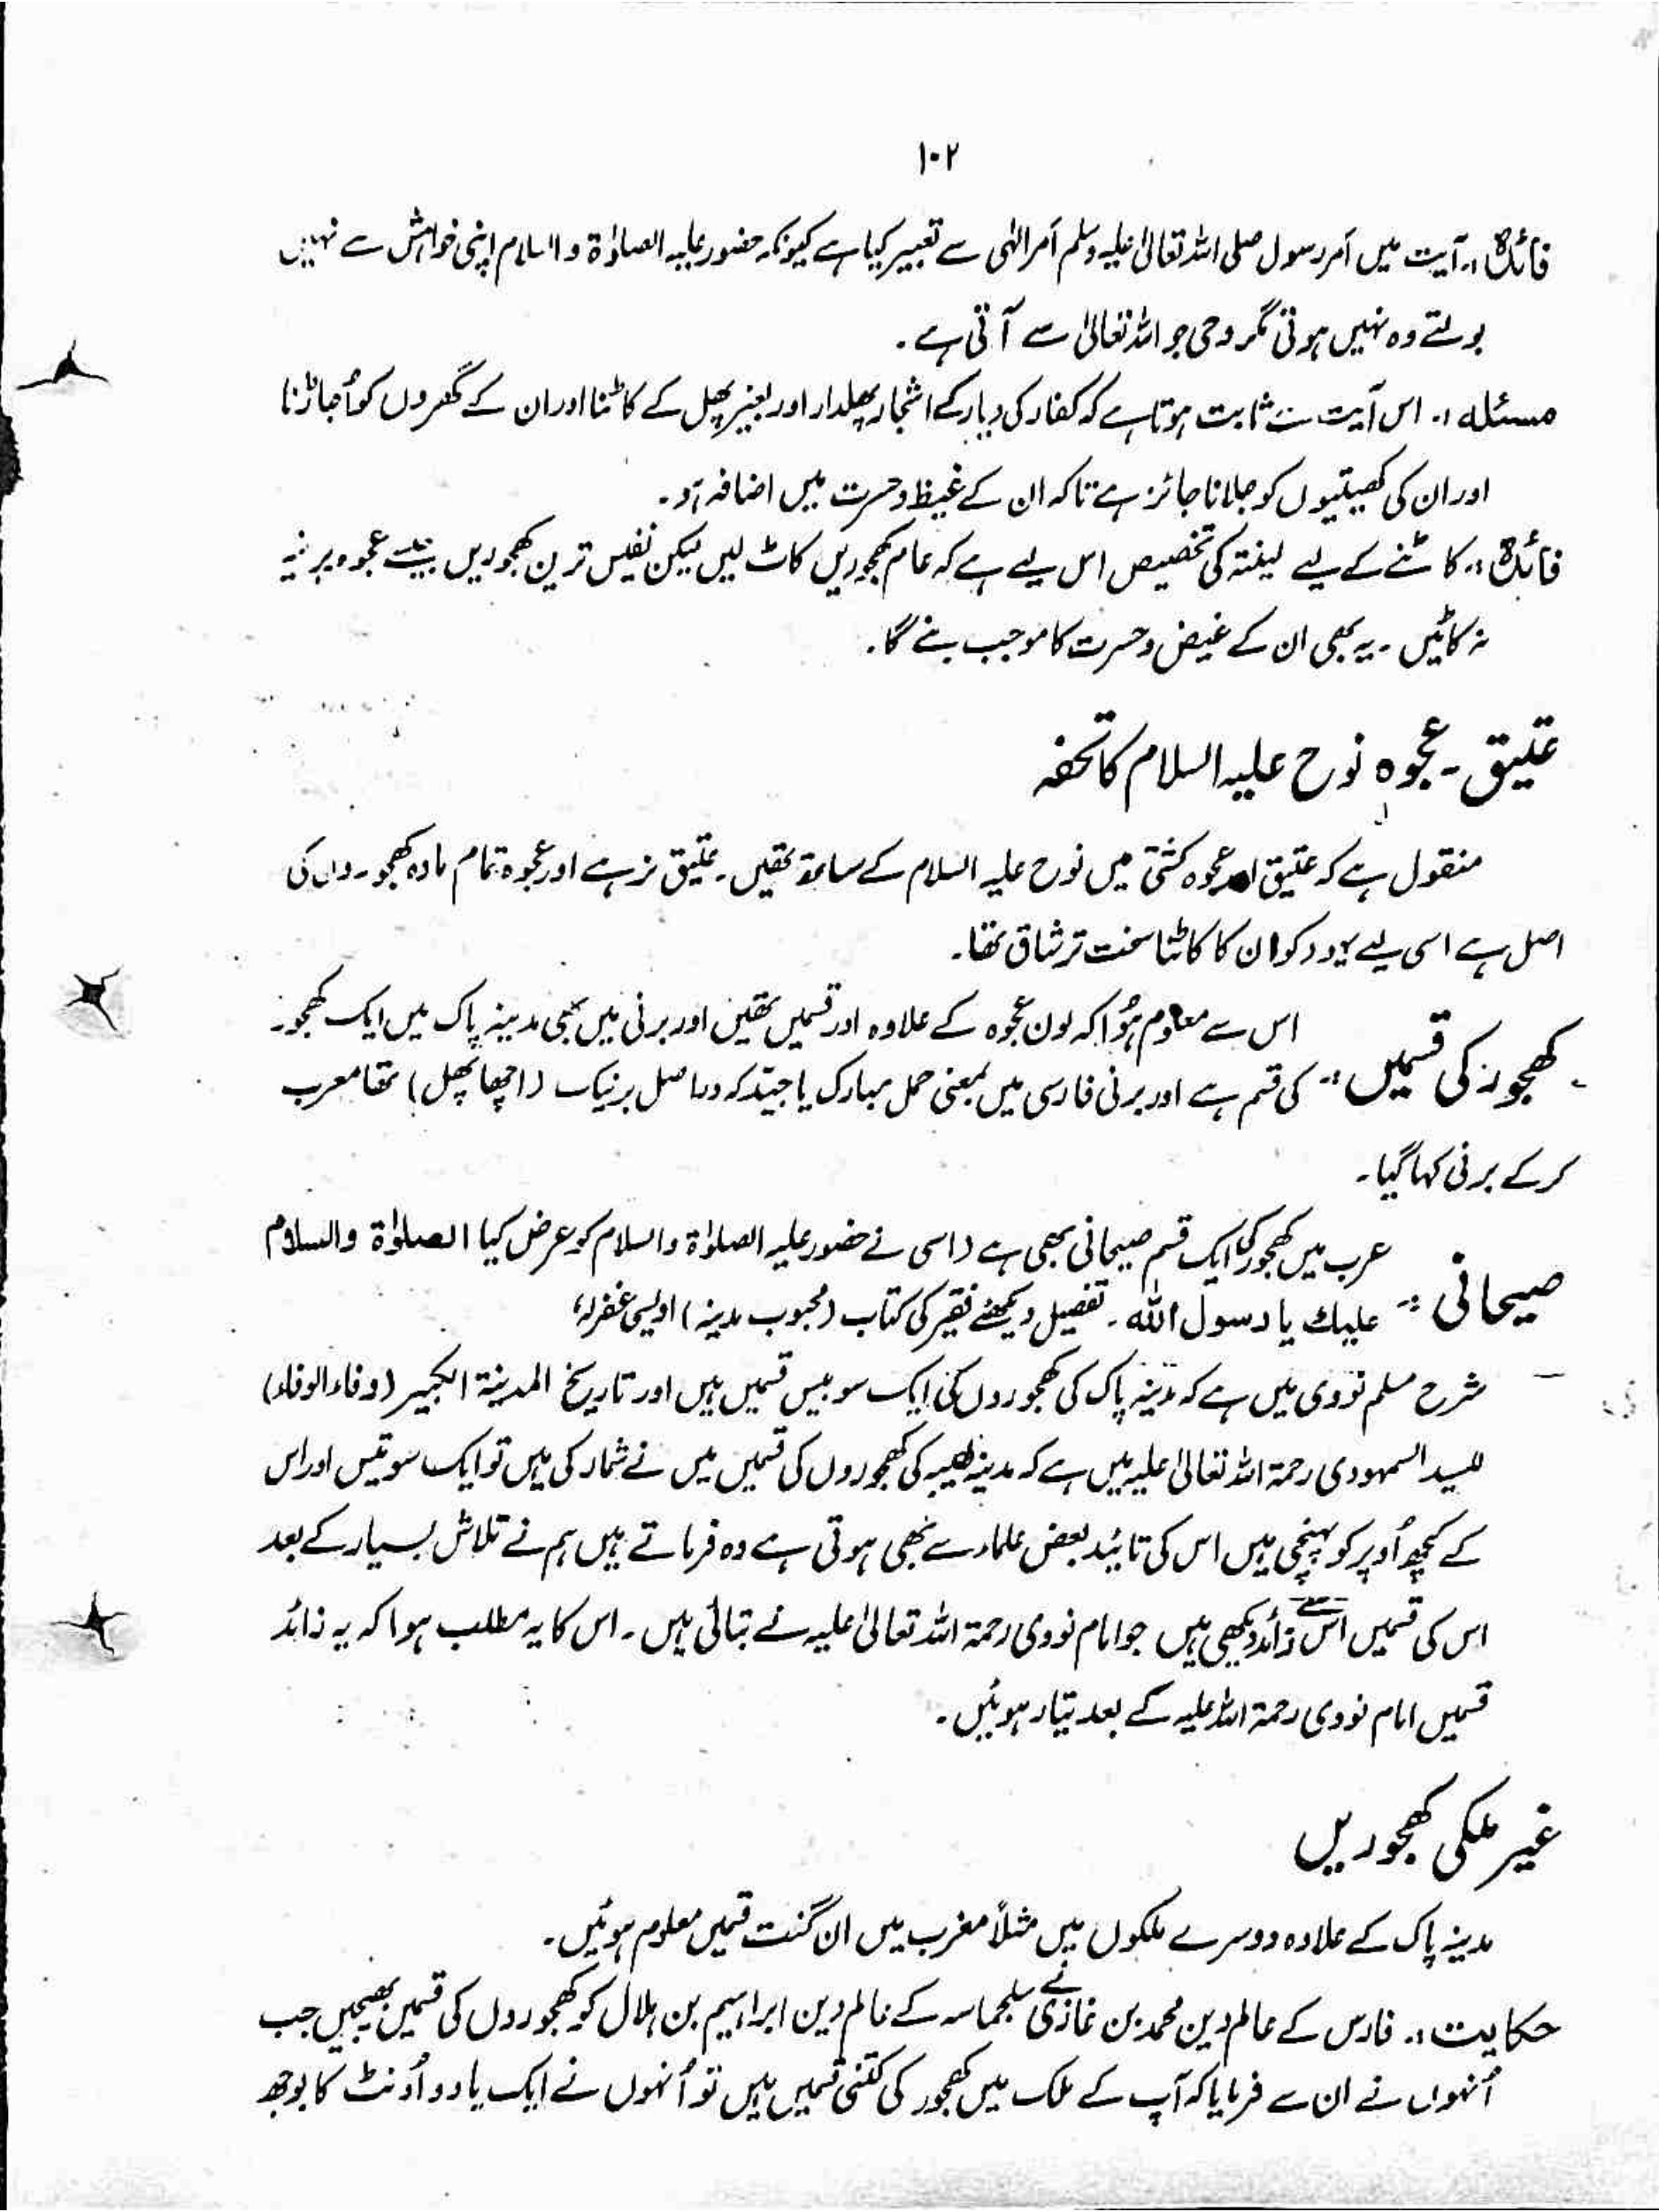 ۱۰۲
فائدہ :۔ آیت میں اَمر رسول صلی اللہ تعالیٰ علیہ وسلم اَمر الٰہی سے تعبیر کیا ہے کیونکہ حضور علیہ الصلوٰۃ والسلام اپنی خواہش سے نہیں
بولتے وہ نہیں ہوتی مگر وحی جو اللہ تعالیٰ سے آتی ہے ۔
مسئلہ :۔ اس آیت سے ثابت ہوتا ہے کہ کفار کی دیار کے اشجار پھلدار اور بغیر پھل کے کاٹنا اور ان کے گھروں کو اُجاڑنا
اور ان کی کھیتیوں کو جلانا جائز ہے تاکہ ان کے غیظ و حسرت میں اضافہ ہو ۔
فائدہ :۔ کاٹنے کے لیے لینتہ کی تخصیص اس لیے ہے کہ عام کھجوریں کاٹ لیں لیکن نفیس ترین کھجوریں جیسے عجوہ برنیہ
نہ کاٹیں ۔ یہ بھی ان کے غیض و حسرت کا موجب بنے گا ۔
عتیق ۔ عجوہ نوح علیہ السلام کا تحفہ
منقول ہے کہ عتیق اور عجوہ کشتی میں نوح علیہ السلام کے ساتھ تھیں ۔ عتیق نر ہے اور عجوہ تمام مادہ کھجوروں کی
اصل ہے اسی لیے یہود کو ان کا کاٹنا سخت تر شاق تھا ۔
اس سے معلوم ہُوا کہ لون عجوہ کے علاوہ اور قسمیں تھیں اور برنی میں بھی مدینہ پاک میں ایک کھجور
کھجور کی قسمیں :۔ کی قسم ہے اور برنی فارسی میں بمعنی حمل مبارک یا جیّد کہ دراصل برنیک (اچھا پھل) تھا معرب
کر کے برنی کہا گیا ۔
عرب میں کھجور کی ایک قسم صیحانی بھی ہے (اسی نے حضور علیہ الصلوٰۃ والسلام کو عرض کیا الصلوٰۃ والسلام
صیحانی :۔ علیك یا رسول الله ۔ تفصیل دیکھئے فقیر کی کتاب (محبوب مدینہ) اویسی غفرلہٗ
شرح مسلم نووی میں ہے کہ مدینہ پاک کی کھجوروں کی ایک سو بیس قسمیں ہیں اور تاریخ المدینۃ الکبیر (وفاء الوفاء)
للسید السمہودی رحمۃ اللہ تعالیٰ علیہ میں ہے کہ مدینہ طیبہ کی کھجوروں کی قسمیں میں نے شمار کی ہیں تو ایک سو تیس اور اس
کے کچھ اُوپر کو پہنچی ہیں اس کی تائید بعض علماء سے بھی ہوتی ہے وہ فرماتے ہیں ہم نے تلاش بسیار کے بعد
اس کی قسمیں اس سے زائد دیکھی ہیں جو امام نووی رحمۃ اللہ تعالیٰ علیہ نے بتائی ہیں ۔ اس کا یہ مطلب ہوا کہ یہ زائد
قسمیں امام نووی رحمۃ اللہ علیہ کے بعد تیار ہوئیں ۔
غیر ملکی کھجوریں
مدینہ پاک کے علاوہ دوسرے ملکوں میں مثلاً مغرب میں ان گنت قسمیں معلوم ہوئیں ۔
حکایت :۔ فارس کے عالم دین محمد بن غازی نے سلجماسہ کے عالم دین ابراہیم بن ہلال کو کھجوروں کی قسمیں بھیجیں جب
اُنہوں نے ان سے فرمایا کہ آپ کے ملک میں کھجور کی کتنی قسمیں ہیں تو اُنہوں نے ایک یا دو اُونٹ کا بوجھ